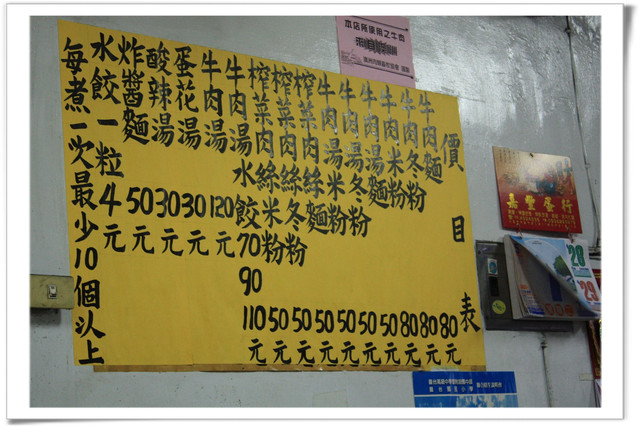 本店所使用之牛肉
價目表
牛肉麵80元
牛肉冬粉80元
牛肉米粉80元
牛肉湯麵50元
牛肉湯冬粉50元
牛肉湯米粉50元
榨菜肉絲麵50元
榨菜肉絲冬粉50元
榨菜肉絲米粉50元
牛肉湯水餃70 90 110元
牛肉湯120元
蛋花湯30元
酸辣湯30元
炸醬麵50元
水餃一粒4元
每煮一次最少10個以上
嘉豐蛋行
28
29